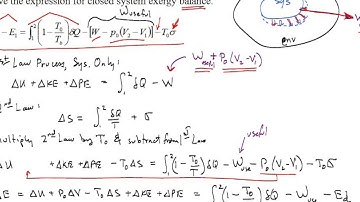 ve the expression for closed system exergy balance.
W_useful
− E₁ = ∫₁² [1 − T₀/T_b] δQ − [W − p₀(V₂ − V₁)] − T₀σ
sys
env
W_useful + P₀(V₂−V₁)
st Law Process, Sys. Only:
ΔU + ΔKE + ΔPE = ∫₁² δQ − W
nd Law:
ΔS = ∫₁² δQ/T + σ
useful
ultiply 2nd Law by T₀ & subtract from 1st Law
ΔU + ΔKE + ΔPE − T₀ΔS = ∫₁² (1 − T₀/T) δQ − W_use − P₀(V₂−V₁) − T₀σ
E = ΔU + P₀ΔV − T₀ΔS + ΔKE + ΔPE = ∫₁² (1 − T₀/T) δQ − W_use − E_d